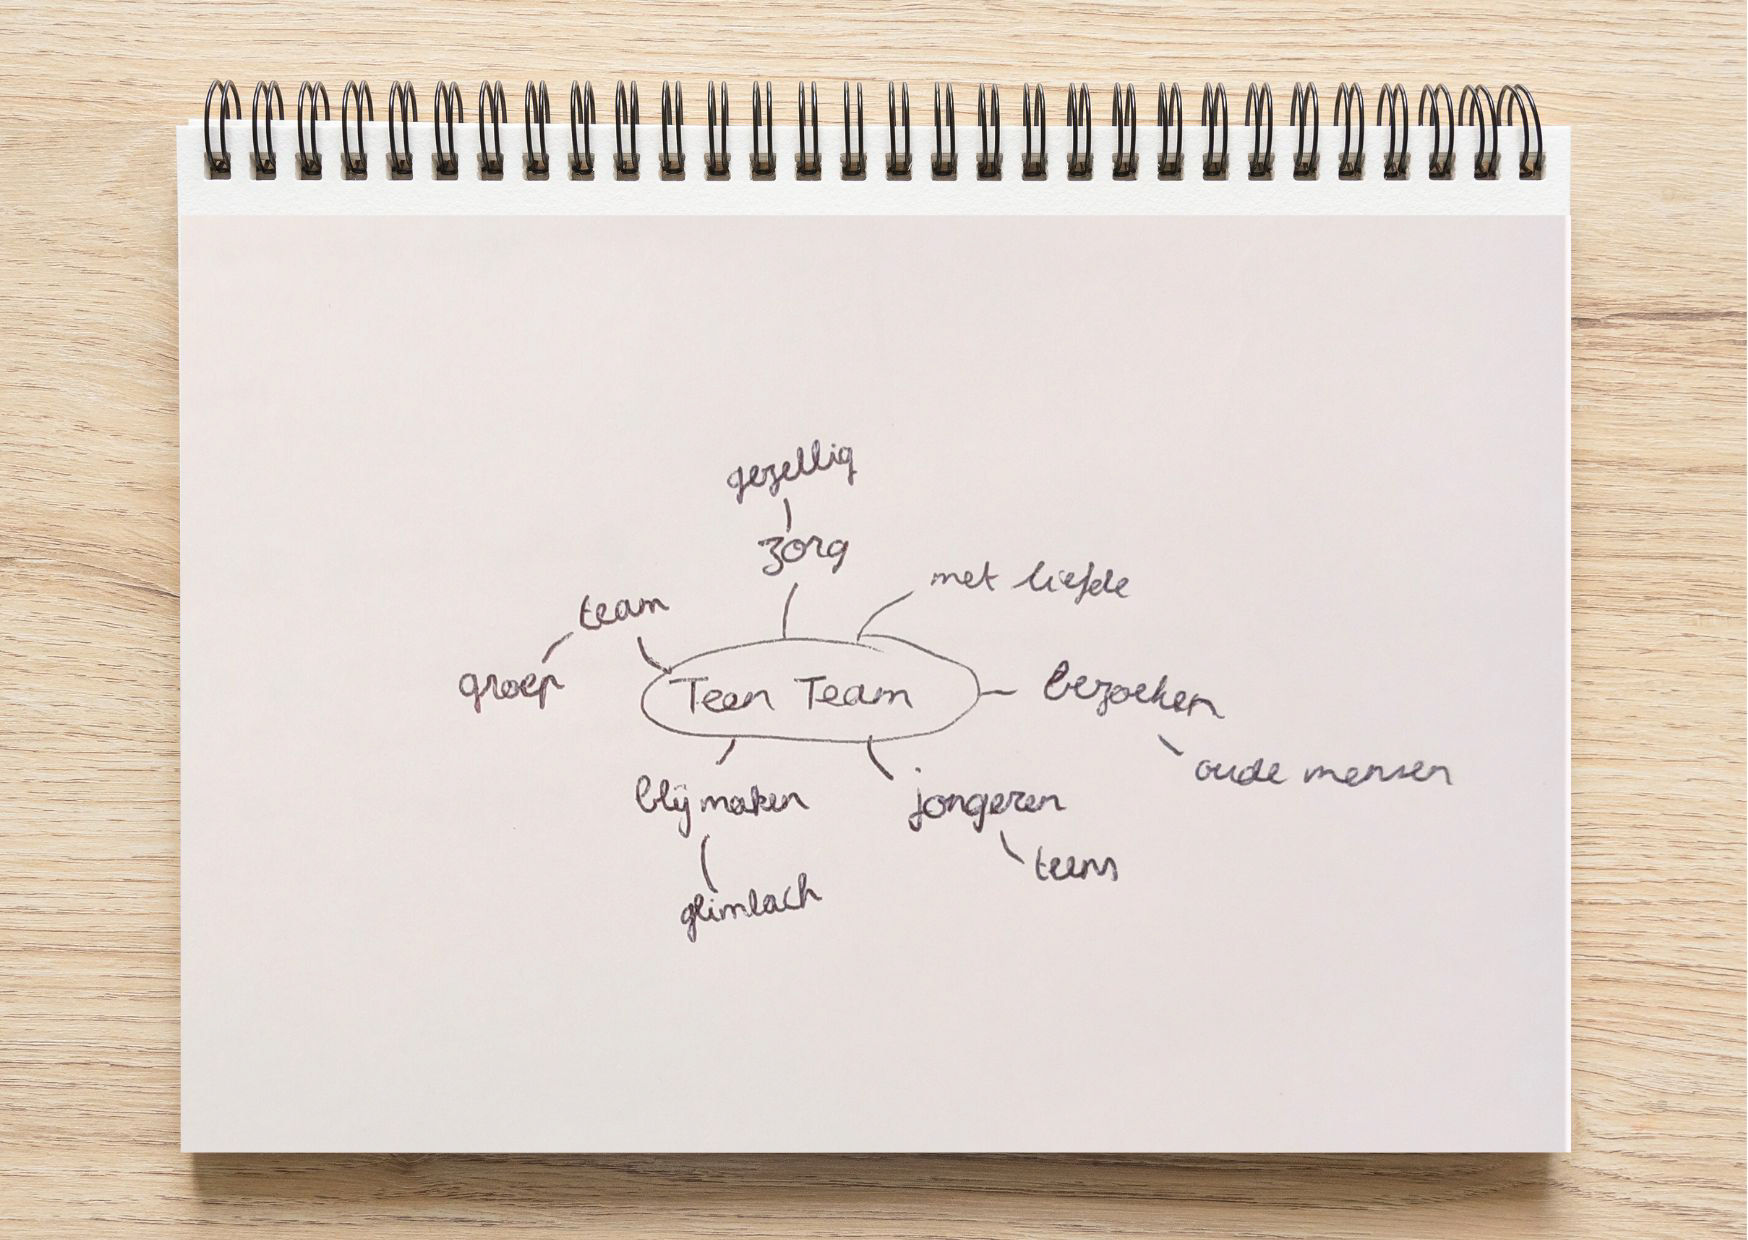 gezellig
zorg
met liefde
team
groep
Teen Team
bezoeken
oude mensen
blij maken
jongeren
teens
glimlach